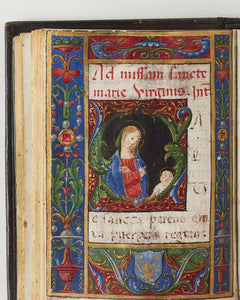 Ad missam sancte
marie Virginis. Int
A
L
V
e sancta parens eni
xa puerpera regem